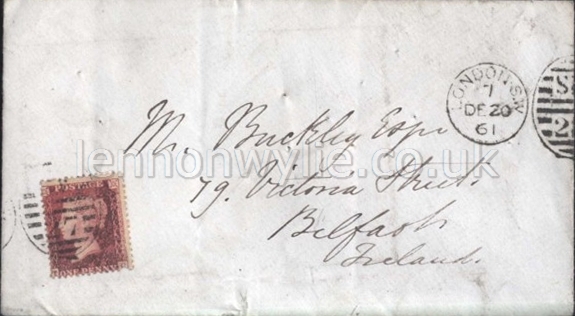 LONDON.S.W
7
DE 20
61
S.W
2
Mr. Buckley Esqr
lennonwylie.co.uk
79. Victoria Street.
Belfast
Ireland.
POSTAGE